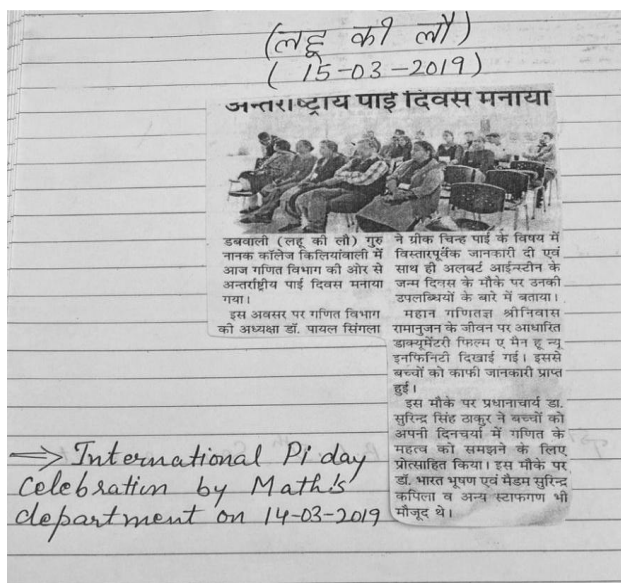 (लहू की लौ)
(15-03-2019)
अन्तराष्ट्रीय पाई दिवस मनाया
डबवाली (लहू की लौ) गुरु
नानक कॉलेज किलियांवाली में
आज गणित विभाग की ओर से
अन्तर्राष्ट्रीय पाई दिवस मनाया
गया।
इस अवसर पर गणित विभाग
की अध्यक्षा डॉ. पायल सिंगला
ने ग्रीक चिन्ह पाई के विषय में
विस्तारपूर्वक जानकारी दी एवं
साथ ही अलबर्ट आईन्स्टीन के
जन्म दिवस के मौके पर उनकी
उपलब्धियों के बारे में बताया।
महान गणितज्ञ श्रीनिवास
रामानुजन के जीवन पर आधारित
डाक्यूमेंटरी फिल्म ए मैन हू न्यू
इनफिनिटी दिखाई गई। इससे
बच्चों को काफी जानकारी प्राप्त
हुई।
इस मौके पर प्रधानाचार्य डा.
सुरिन्द्र सिंह ठाकुर ने बच्चों को
अपनी दिनचर्या में गणित के
महत्व को समझने के लिए
प्रोत्साहित किया। इस मौके पर
डॉ. भारत भूषण एवं मैडम सुरिन्द्र
कपिला व अन्य स्टाफगण भी
मौजूद थे।
⇒ International Pi day
celebration by Math's
department on 14-03-2019